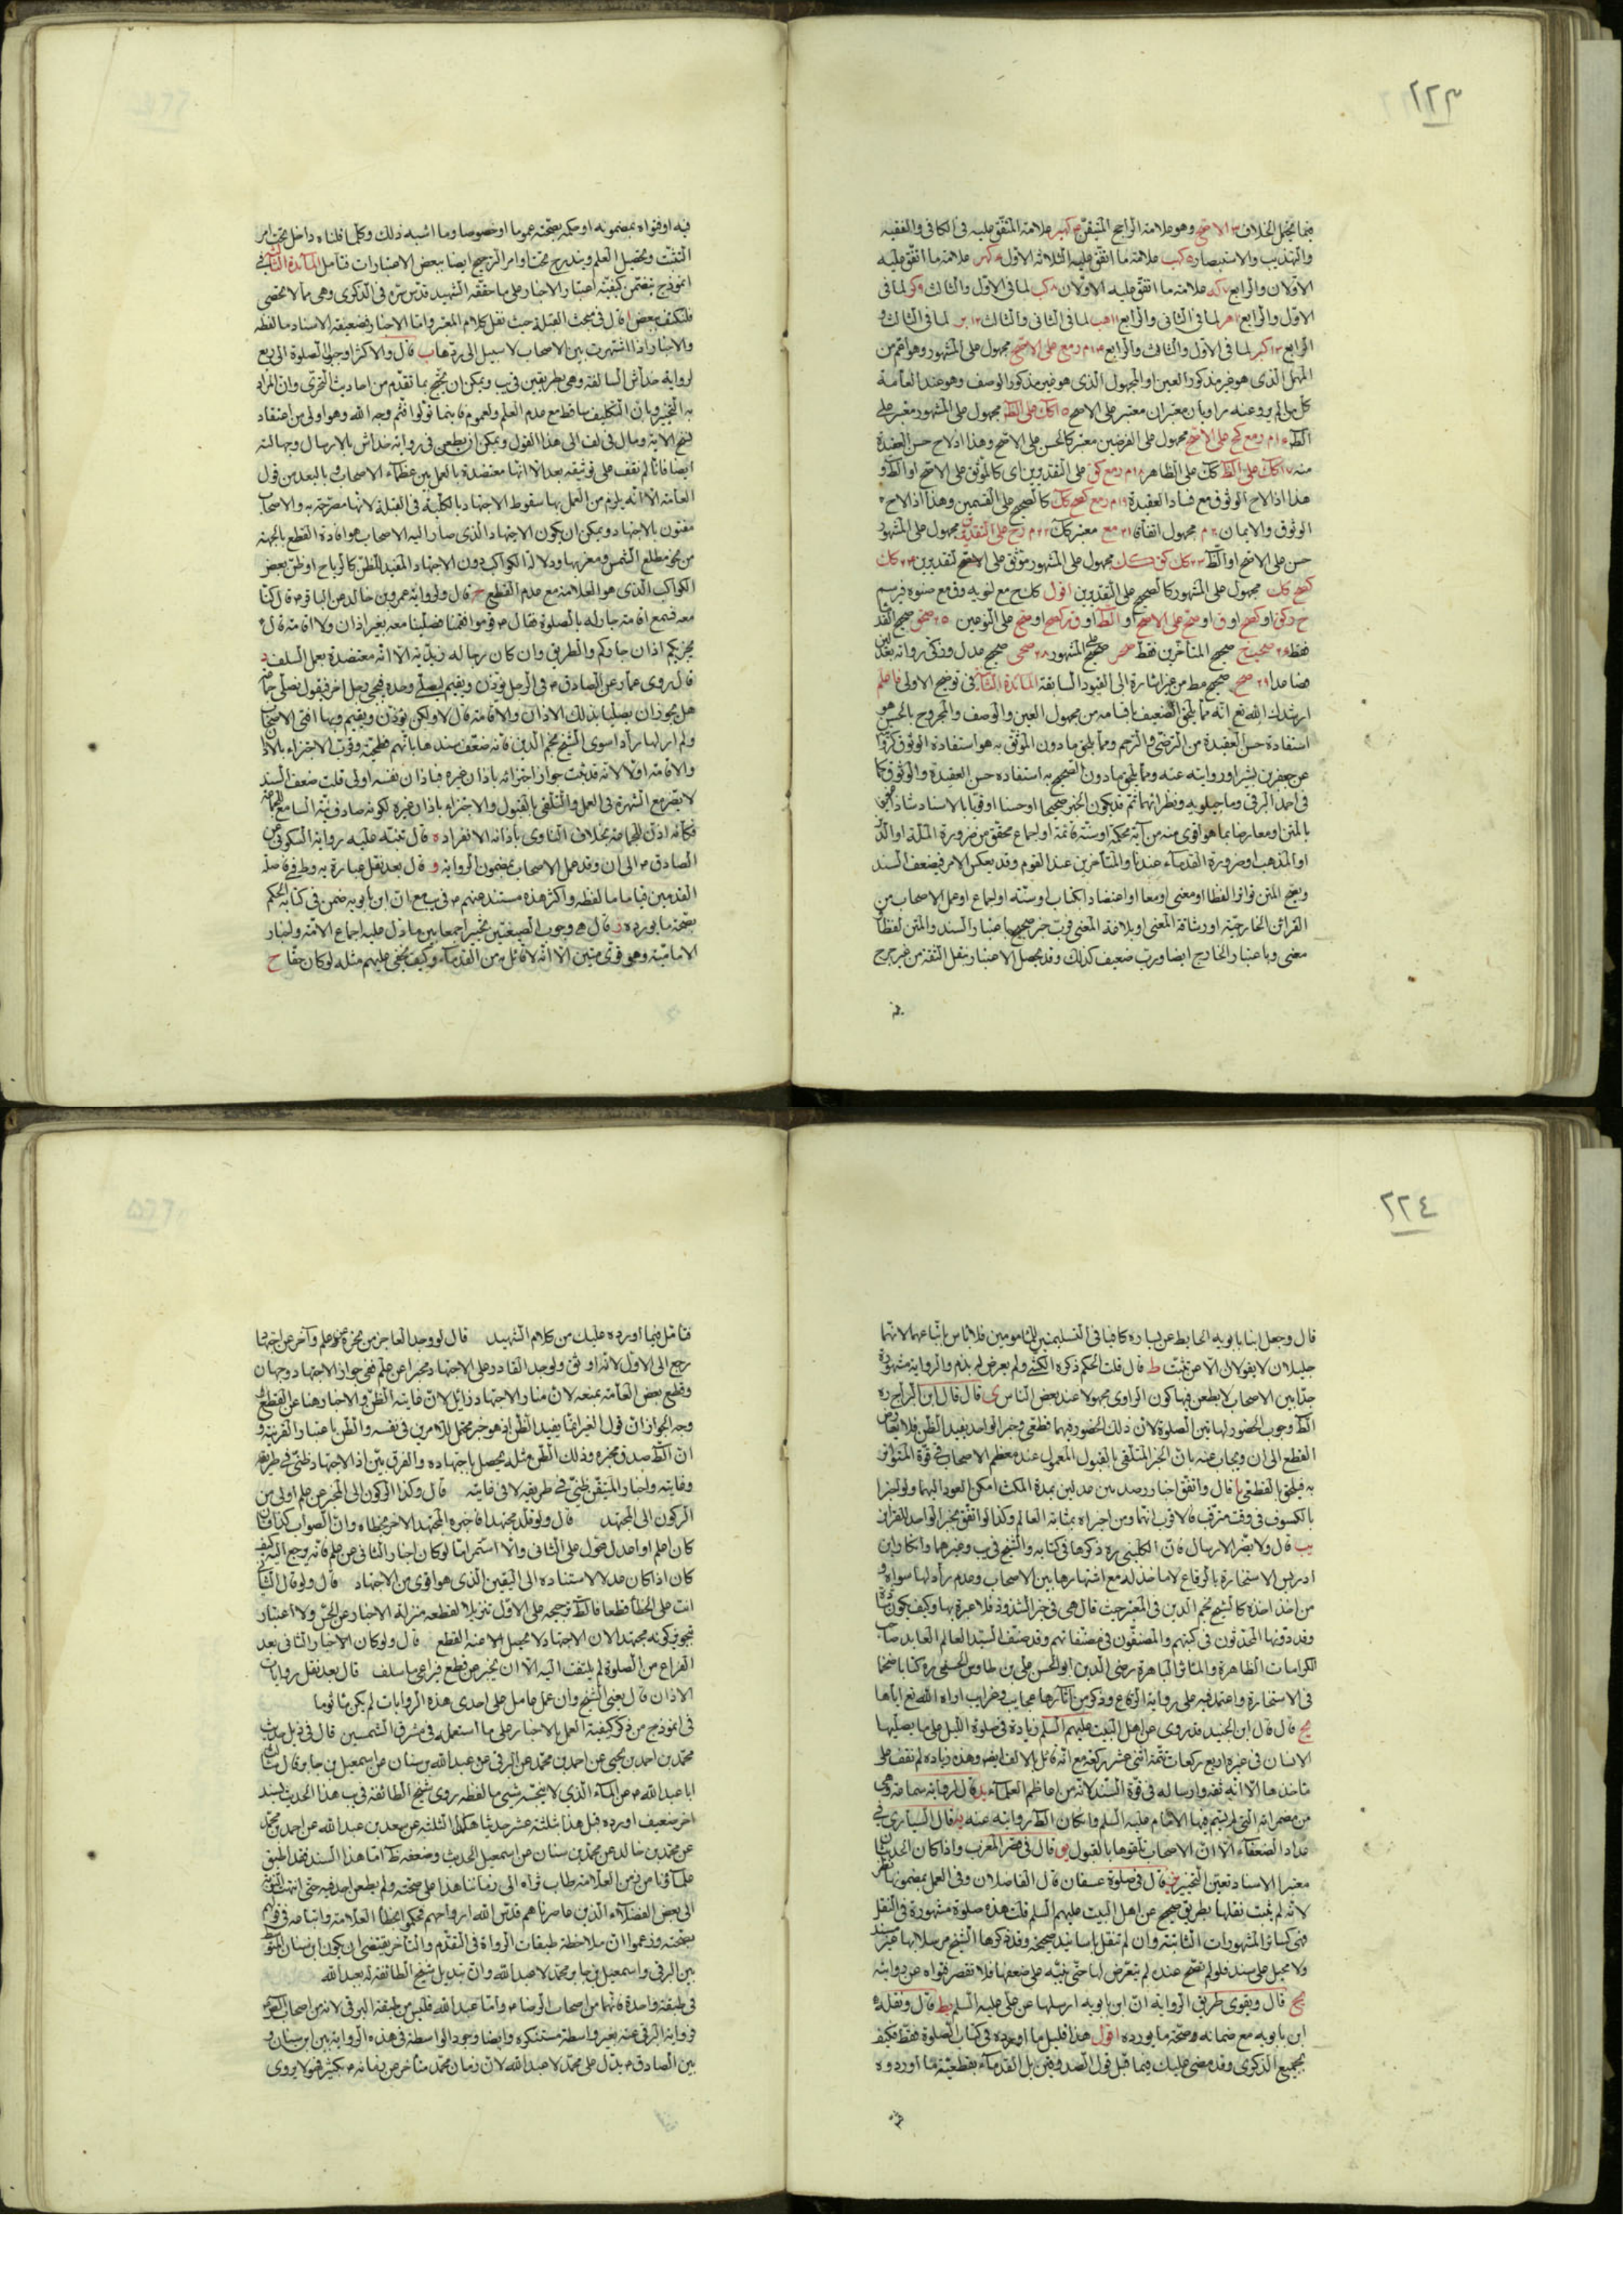 ٢٢٣
فيما يحتمل الخلاف الاصح وهو علامة الراجح المتيقن كهبر علامة المتفق عليه فى الكافى والفقيه
والتهذيب والاستبصار كهب علامة ما اتفق عليه الثلاثة الاول كهر علامة ما اتفق عليه
الاولان والرابع علامة ما اتفق عليه الاولان كب لما فى الاول والثالث كر لما فى
الاول والرابع هر لما فى الثانى والرابع هب لما فى الثانى والثالث بر لما فى الثالث و
الرابع كبر لما فى الاول والثالث والرابع م ومع على الاصح مجهول على المشهور وهو اعم من
المهمل الذى هو غير مذكور العين او المجهول الذى هو غير مذكور الوصف وهو عند العامة
كل من لم يرو عنه راويان معتبران معتبر على الاصح كك على الظ مجهول على المشهور معتبر على
الظ م ومع كح على الاصح مجهول على الفرضين معتبر كالحسن على الاصح وهذا اذ لاح حسن العقيدة
منه كك على الظ كك على الظاهر م ومع كق على التقديرين اى كالموثق على الاصح او الظ و
هذا اذا لاح الوثوق مع فساد العقيدة م ومع كصح كك كالصحيح على القسمين وهذا اذا لاح
الوثوق والايمان م مجهول اتفاقا مع معتبر كك م وح على التقديرين مجهول على المشهور
حسن على الاصح او الظ كك كق كك مجهول على المشهور موثق على الاصح لتقديرين كك
كصح كك مجهول على المشهور كالصحيح على التقديرين اقول كل ح مع لنويه وق مع صنوه فيرسم
ح وكق او كصح او ق او صح على الاصح او الظ او ق وكصح او صح على النوعين صحق صحيح القدماء
فقط صحيح المتأخرين فقط صحر صحيح على المشهور صحى صحيح مدل وزكى رواته بعدلين
فصاعدا صح صحيح مط من غير اشارة الى القيود السابقة المائدة الثالثة فى توضيح الاولى فاعلم
ارشدك الله تع انه مما يلحق الضعيف باقسامه من مجهول العين والوصف والمجروح بالحسن هو
استفادة حسن العقيدة من الترضى والترحم ومما يلحق ما دون الموثق به هو استفادة الوثوق
عن جعفر بن بشير او روايته عنه ومما يلحق ما دون الصحيح به استفادة حسن العقيدة والوثوق كما
فى احمد البرقى وما جيلويه ونظرائهما ثم قد يكون الخبر صحيحا او حسنا او قويا بالاسناد شاذا
بالمتن او معارضا بما هو اقوى منه من آية محكمة او سنة قائمة او اجماع محقق من ضرورة الملة او الدين
او المذهب او ضرورة القدماء عندنا والمتأخرين عند القوم وقد يعكس الامر فيضعف السند
ويصح المتن تواترا لفظا او معنى او معا او اعتضاد الكتاب او سنة او اجماع او عمل الاصحاب من
القرائن الخارجية او رشاقة المعنى او بلاغة المعنى فرب خبر صحيح باعتبار السند والمتن لفظا
معنى وباعتبار الخارج ايضا ورب ضعيف كذلك وقد يحصل الاعتبار بنقل الثقة من غير جرح
فيه او فتواه بمضمونه او حكمه بصحته عموما او خصوصا وما اشبه ذلك وكلما قلناه داخل تحت امر
التثبت وتحصيل العلم ويندرج تحت اوامر الترجيح ايضا ببعض الاعتبارات فتأمل المائدة الثالثة فى
انموذج يتضمن كيفية اعتبار الاخبار على ما حققه الشهيد قدس سره فى الذكرى وهى مما لا تحصى
فلنكتف ببعض ا قال فى مبحث القبلة حيث نقل كلام المعتبر واما الاخبار فضعيفة الاسناد ما لفظه
والاخبار اذا اشتهرت بين الاصحاب لا سبيل الى ردها ب قال والاكثر اوجبوا الصلوة الى اربع
لرواية خداش السالفة وهى بطريقين فى يب ويمكن ان يحتج بما تقدم من احاديث التحرى وان المراد
به التخيير وبان التكليف ساقط مع عدم العلم ولعموم فاينما تولوا فثم وجه الله وهو اولى من اعتقاد
نسخ الاية ومال فى لف الى هذا القول ويمكن ان يطعن فى رواية خداش بالارسال وجهالته
ايضا فانا لم نقف على توثيقه بعد الا انها معتضدة بالعمل بين عظماء الاصحاب وبالبعد من قول
العامة الا انه يلزم من العمل بها سقوط الاجتهاد بالكلية فى القبلة لانها مصرحة به والاصحاب
مفتون بالاجتهاد ويمكن ان يكون الاجتهاد الذى صار اليه الاصحاب هو افادة القطع بالجهة
من نحو مطلع الشمس ومغربها ودلالة الكواكب دون الاجتهاد المفيد للظن كالرياح او ظن بعض
الكواكب الذى هو العلامة مع عدم القطع ج قال ولرواية عمرو بن خالد عن الباقر ع قال كنا
معه فسمع اقامة جار له بالصلوة فقال ع قوموا فقمنا فصلينا معه بغير اذان ولا اقامة قال
يجزيكم اذان جاركم والطريق وان كان رجاله زيدية الا انه معتضدة بعمل السلف د
قال روى عمار عن الصادق ع فى الرجل يؤذن ويقيم ليصلى وحده فيجئ رجل اخر فيقول نصلى جماعة
هل يجوز ان يصليا بذلك الاذان والاقامة قال لا ولكن يؤذن ويقيم وبها افتى الاصحاب
ولم ار لها رادا سوى الشيخ نجم الدين فانه ضعف سندها بانهم فطحية وقرب الاجتزاء بالاذان
والاقامة اولا لانه قد ثبت جواز اجتزائه باذان غيره فباذان نفسه اولى قلت ضعف السند
لا يضر مع الشهرة فى العمل والتلقى بالقبول والاجتزاء باذان غيره لكونه صادف نية السامع للجماعة
فكأنه اذن للجماعة بخلاف الناوى باذانه الانفراد ه قال تنبه عليه رواية السكونى عن
الصادق ع الى ان وقد عمل الاصحاب بمضمون الرواية و قال بعد نقل عبارة يه وط فى فاصلة
القدمين قياما ما لفظه واكثر هذه مستند عنهم ع فى يب مع ان ابن بابويه ضمن فى كتابه الحكم
بصحة ما يورده ز قال هى وجوب الصيغتين تخييرا جمعا بين ما دل عليه اجماع الامة واخبار
الامامية وهو قوى متين الا انه لا قائل من القدماء وكيف يخفى عليهم مثله لو كان حقا ح
٢٢٤
قال وجعل ابنا بابويه الحايط عن يساره كافيا فى التسليمتين للمأمومين فلا بأس باتباعهما لانهما
جليلان لا يقولان الا عن ثبت ط قال قلت الحكم ذكره الكشى ولم يعرض له بذم والرواية مشهورة
جدا بين الاصحاب لا يطعن فيها كون الراوى مجهولا عند بعض الناس ى قال قال ابن البراج ره
الظ وجوب الحضور لهاتين الصلوة لان ذلك الحضور فيهما قطعى وخبر الواحد يفيد الظن فلا يعارض
القطع الى ان ويجاب عنه بان الخبر المتلقى بالقبول المعمول عند معظم الاصحاب فى قوة المتواتر
به فيلحق بالقطعى يا قال واتفق اخبار رصد بين عدلين بمدة المكث امكن العود اليهما ولو اخبرا
بالكسوف فى وقت مترقب فالاقرب انهما ومن اخبراه بمثابة العالم وكذا لو اتفق مخبر الواحد للقراين
يب قال ولا يضر الارسال فان الكلينى ره ذكرها فى كتابه والشيخ فى يب وغيرهما وانكار ابن
ادريس الاستخارة بالرقاع لا مأخذ له مع اشتهارها بين الاصحاب وعدم راد لها سواه و
من اخذ اخذه كالشيخ نجم الدين فى المعتبر حيث قال هى فى خبر الشذوذ فلا عبرة بها وكيف يكون شاذة
وقد دونها المحدثون فى كتبهم والمصنفون فى مصنفاتهم وقد صنف السيد العالم العابد صاحب
الكرامات الظاهرة والمآثر الباهرة رضى الدين ابو الحسن على بن طاوس الحسنى ره كتابا ضخما
فى الاستخارة واعتمد فيه على رواية الرقاع وذكر من آثارها عجايب وغرايب اراه الله تع اياها
يج قال قال ابن الجنيد قد روى عن اهل البيت عليهم السلم زيادة فى صلوة الليل على ما يصليها
الانسان فى غيره اربع ركعات تتمة اثنى عشر ركعة مع انه قائل بالالف ايضا وهذه زيادة لم نقف على
مأخذها الا انه ثقة وارساله فى قوة المسند لانه من اعاظم العلماء يد قال لرواية سماعة وهى
من مضمراته التى لم يتم فيها الامام عليه السلم وان كان الظ روايته عنه يه قال السيارى فى
عداد الضعفاء الا ان الاصحاب تلقوها بالقبول يو قال فى قصر المغرب واذا كان الحديثان
معتبرا الاسناد تعين التخيير يز قال فى صلوة عسفان قال الفاضلان وفى العمل بمضمونها نظر
لانه لم يثبت نقلها بطريق صحيح عن اهل البيت عليهم السلم قلت هذه صلوة مشهورة فى النقل
فهى كسائر المشهورات الثابتة وان لم تنقل باسانيد صحيحة وقد ذكرها الشيخ مرسلا لها غير مسند
ولا محيل على سند فلو لم تصح عنده لم يتعرض لها حتى ينبه على ضعفها فلا تقصر فتواه عن رواته
يح قال ويقوى طريق الرواية ان ابن بابويه ارسلها عن على عليه السلم يط قال ونقله
ابن بابويه مع ضمانه وصحة ما يورده اقول هذا قليل مما اورده فى كتاب الصلوة فقط فكيف
بجميع الذكرى وقد مضى عليك فيما قبل قول الصدوقين بل القدماء بقطعية ما اوردوه
فتأمل فيما اورده عليك من كلام الشهيد قال لو وجد العاجز من مخبرة عن علم وآخر عن اجتهاد
رجع الى الاول لانه اوثق ولو وجد القادر على الاجتهاد مخبرا عن علم ففى جواز الاجتهاد وجهان
وقطع بعض العامة بمنعه لان منار الاجتهاد زائل لان غايته الظن والاخبار هنا عن القطع
وجه الجواز ان قول الغير انما يفيد الظن اذ هو خبر محتمل للامرين فى نفسه والظن باعتبار القرينة و
ان الظ صدق مخبره وذلك الظن مثله يحصل باجتهاده والفرق بين اذ الاجتهاد ظنى فى طريقه
وغايته واخبار المتيقن ظنى فى طريقه لا فى غايته قال وكذا الركون الى المخبر عن علم اولى من
الركون الى المجتهد قال ولو قلد مجتهدا فاخبره المجتهد الاخر بخطاه وان الصواب كذا فان
كان اعلم او اعدل عول على الثانى والا استمر اما لو كان اخبار الثانى عن علم فانه يرجع اليه كيف
كان اذا كان عدلا لاستناده الى اليقين الذى هو اقوى من الاجتهاد قال ولو قال الثانى
انت على الخطأ قطعا فالظ ترجيحه على الاول تنزيلا لقطعه منزلة الاخبار عن الحس ولا اعتبار
بتجويز كونه مجتهدا لان الاجتهاد لا يحصل الا عند القطع قال ولو كان الاخبار الثانى بعد
الفراغ من الصلوة لم يلتفت اليه الا ان يخبر عن قطع فيراعى ما سلف قال بعد نقل روايات
الاذان قال يعنى الشيخ وان عمل عامل على احدى هذه الروايات لم يكن مأثوما
فى انموذج من ذكر كيفية العمل بالاخبار على ما استعمله فى مشرق الشمسين قال فى ذيل حديث
محمد بن احمد بن يحيى عن احمد بن محمد عن البرقى عن عبد الله بن سنان عن اسمعيل بن جابر قال سألت
ابا عبد الله ع عن الماء الذى لا ينجسه شئ ما لفظه روى شيخ الطائفة فى يب هذا الحديث بسند
اخر ضعيف اورده قبل هذا بثلثة عشر حديثا هكذا الثلثة عن سعد بن عبد الله عن احمد بن محمد
عن محمد بن خالد عن محمد بن سنان عن اسمعيل الحديث وضعفه ظ اما هذا السند فقد اطبق
علماؤنا من زمن العلامة طاب ثراه الى زماننا هذا على صحته ولم يطعن احد فيه حتى انتهت النوبة
الى بعض الفضلاء الذين عاصرناهم قدس الله ارواحهم فحكموا بخطأ العلامة واتباعه فى قولهم
بصحته وزعموا ان ملاحظة طبقات الرواة فى التقدم والتأخر يقتضى ان يكون ابن سنان المتوسط
بين البرقى واسمعيل بن جابر محمدا لا عبد الله وان تبديل شيخ الطائفة له بعبد الله
فى طبقة واحدة فانهما من اصحاب الرضا ع واما عبد الله فليس من طبقة البرقى لانه من اصحاب الصادق ع
فرواية البرقى عنه بغير واسطة مستنكره وايضا وجود الواسطة فى هذه الرواية بين ابن سنان و
بين الصادق ع يدل على محمد لا عبد الله لان زمان محمد متأخر عن زمانه ع بكثير فهو لا يروى